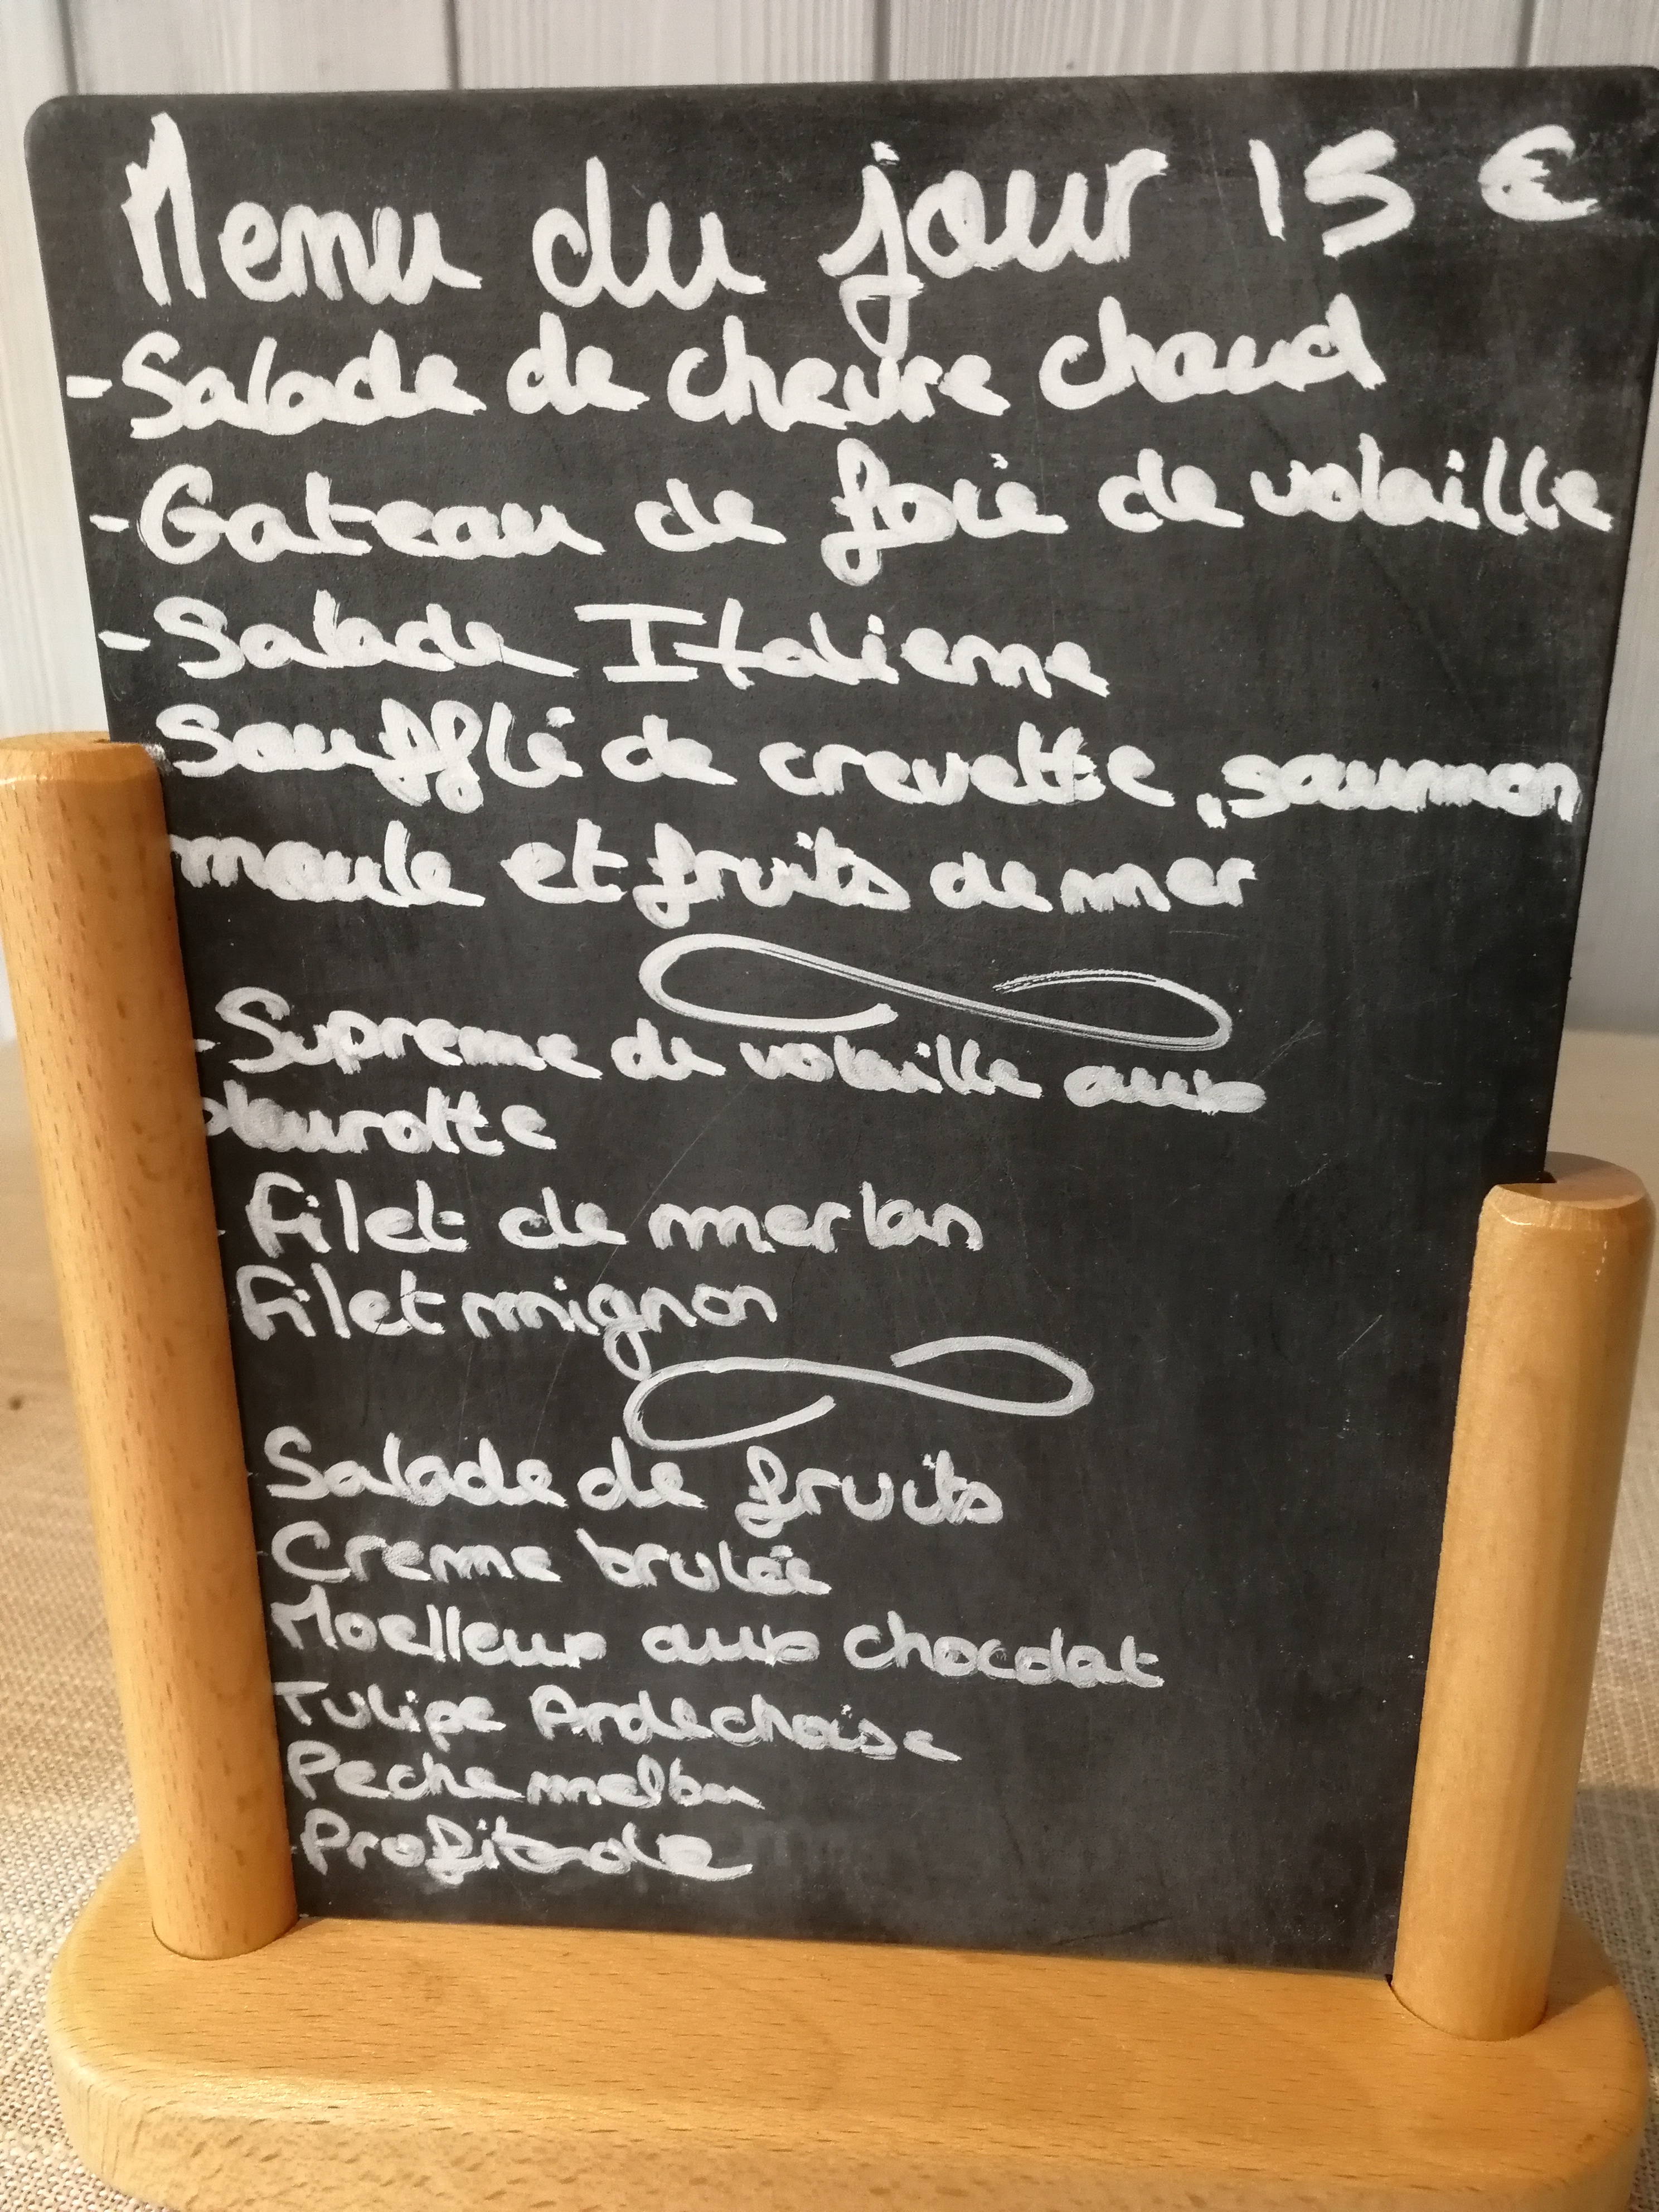 Menu du jour 15 €
- Salade de chevre chaud
- Gateau de foie de volaille
- Salade Italienne
Soufflé de crevette, saumon
moule et fruits de mer
- Supreme de volaille aux
pleurotte
- Filet de merlan
Filet mignon
Salade de fruits
Creme brulée
Moelleux aux chocolat
Tulipe Ardechoise
Peche melba
Profiterole